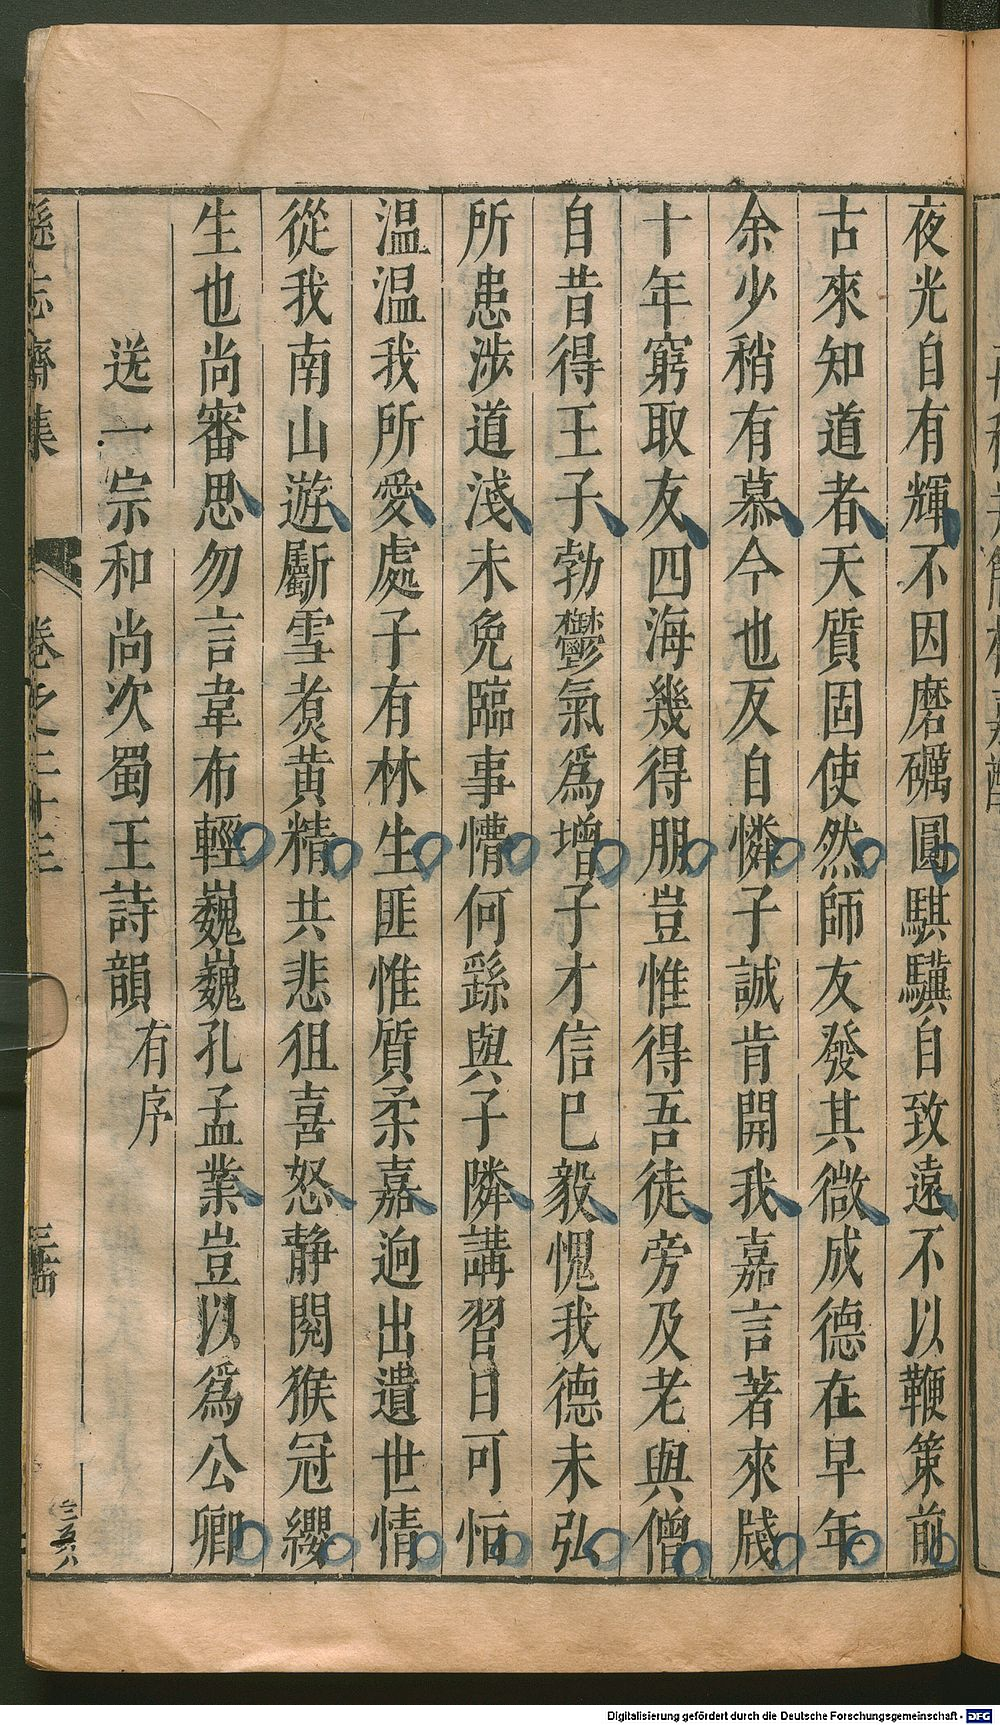 夜光自有輝不因磨礪圓騏驥自致遠不以鞭策前
古來知道者天質固使然師友發其微成德在早年
余少稍有慕今也反自憐子誠肯開我嘉言著來牋
十年窮取友四海幾得朋豈惟得吾徒旁及老與僧
自昔得王子勃鬱氣爲增子才信巳毅愧我德未弘
所患涉道淺未免臨事懵何繇與子隣講習日可恒
溫溫我所愛處子有林生匪惟質柔嘉迥出遺世情
從我南山遊斸雪煑黄精共悲狙喜怒静閱猴冠纓
生也尚審思勿言韋布輕巍巍孔孟業豈以爲公卿
送一宗和尚次蜀王詩韻有序
遜志齋集 卷之二十三
Digitalisierung gefördert durch die Deutsche Forschungsgemeinschaft - DFG